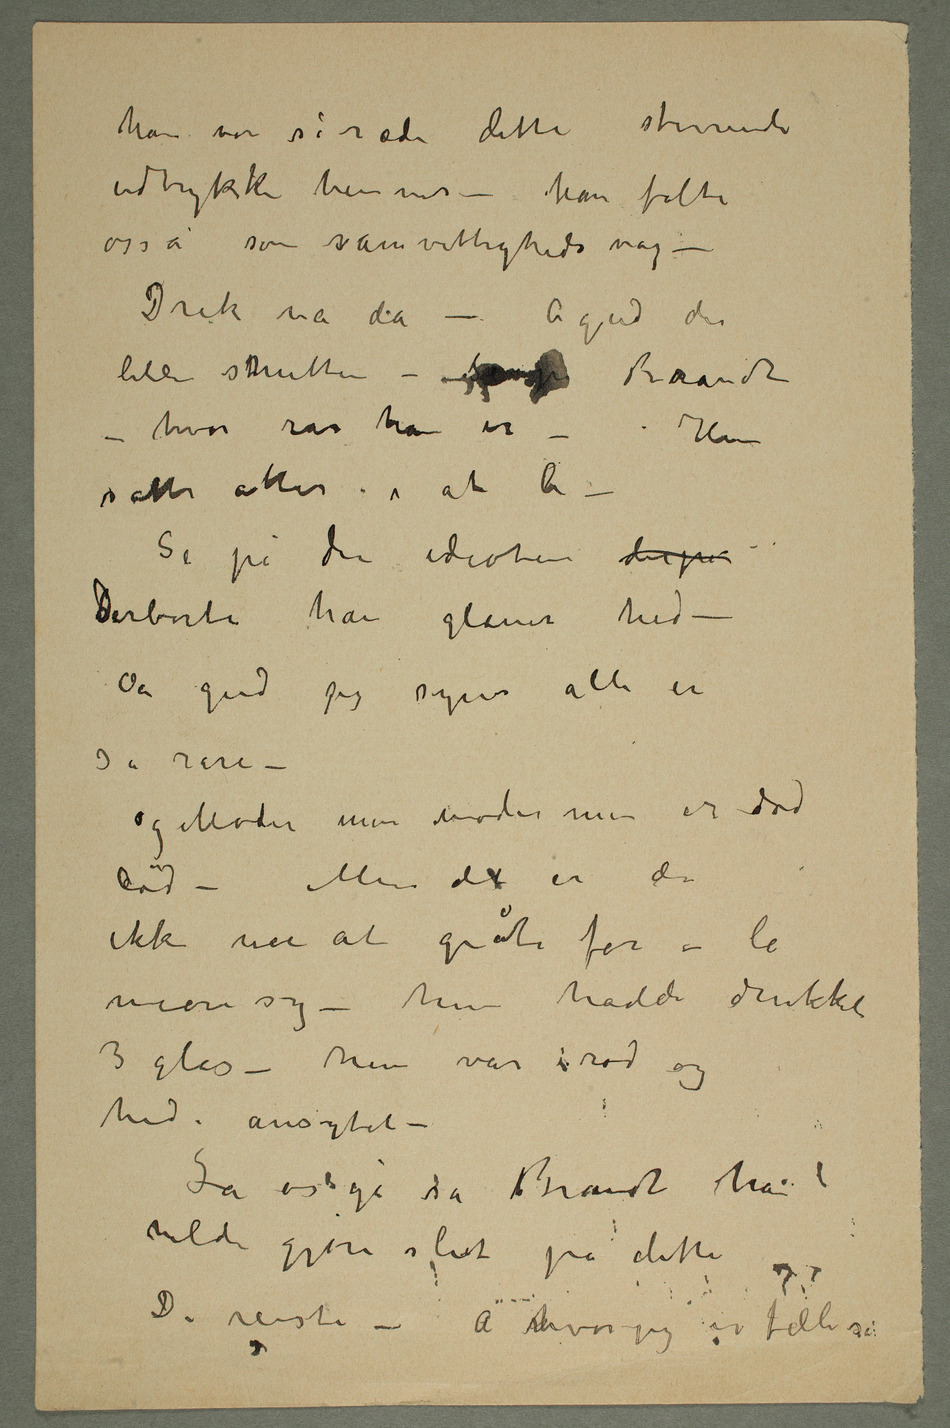 han var så ræd dette stirrende
udtrykket hennes – han følte
osså som samvittighedsnag –
Drik nå da – Å gud du
lille snutten – Brandt
– hvor rar han er – Hun
satte atter i at le –
Se på den idioten
Derborte han glaner hid –
Åa gud jeg synes alle er
så rare –
og Moder min moder min er død
död – Men det er da
ikke noe at gråte for – le
more sig – hun hadde drukket
3 glas – hun var rød og
hed i ansigtet –
La os gå sa Brandt han
vilde gjøre slut på dette
De reiste – Å hvor jeg er fæl så